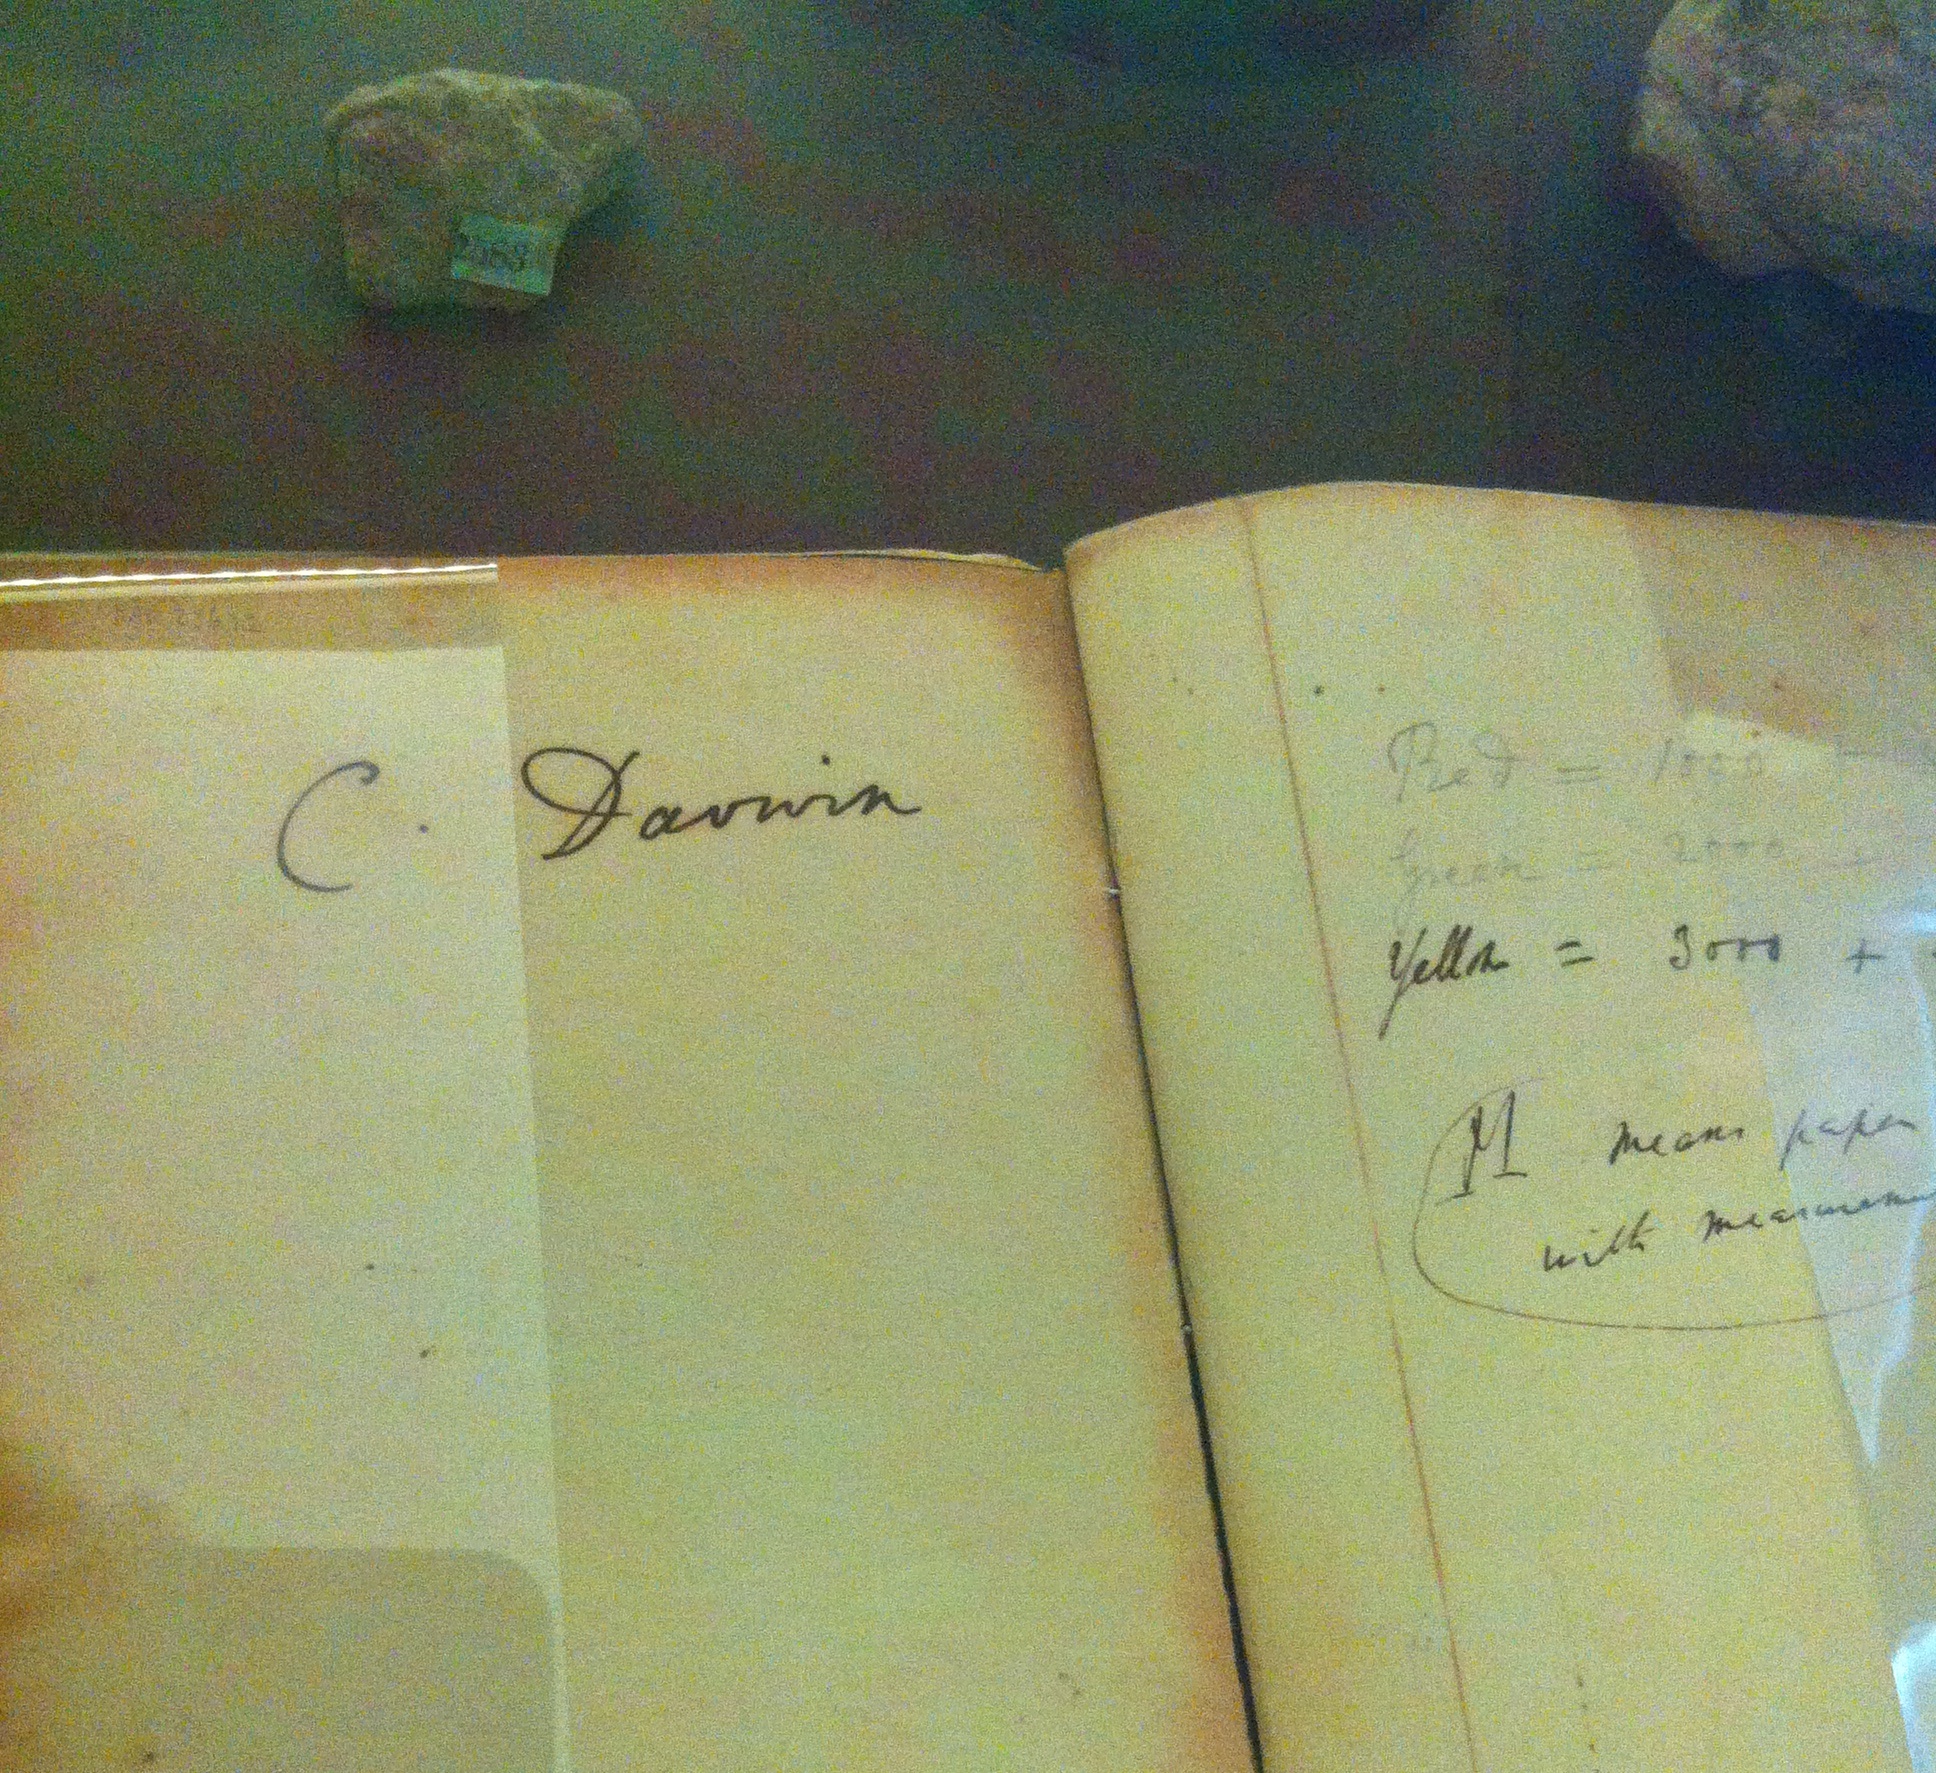 C. Darwin
Red = 1000 +
Green = 2000 +
Yellow = 3000 +
M means paper
with